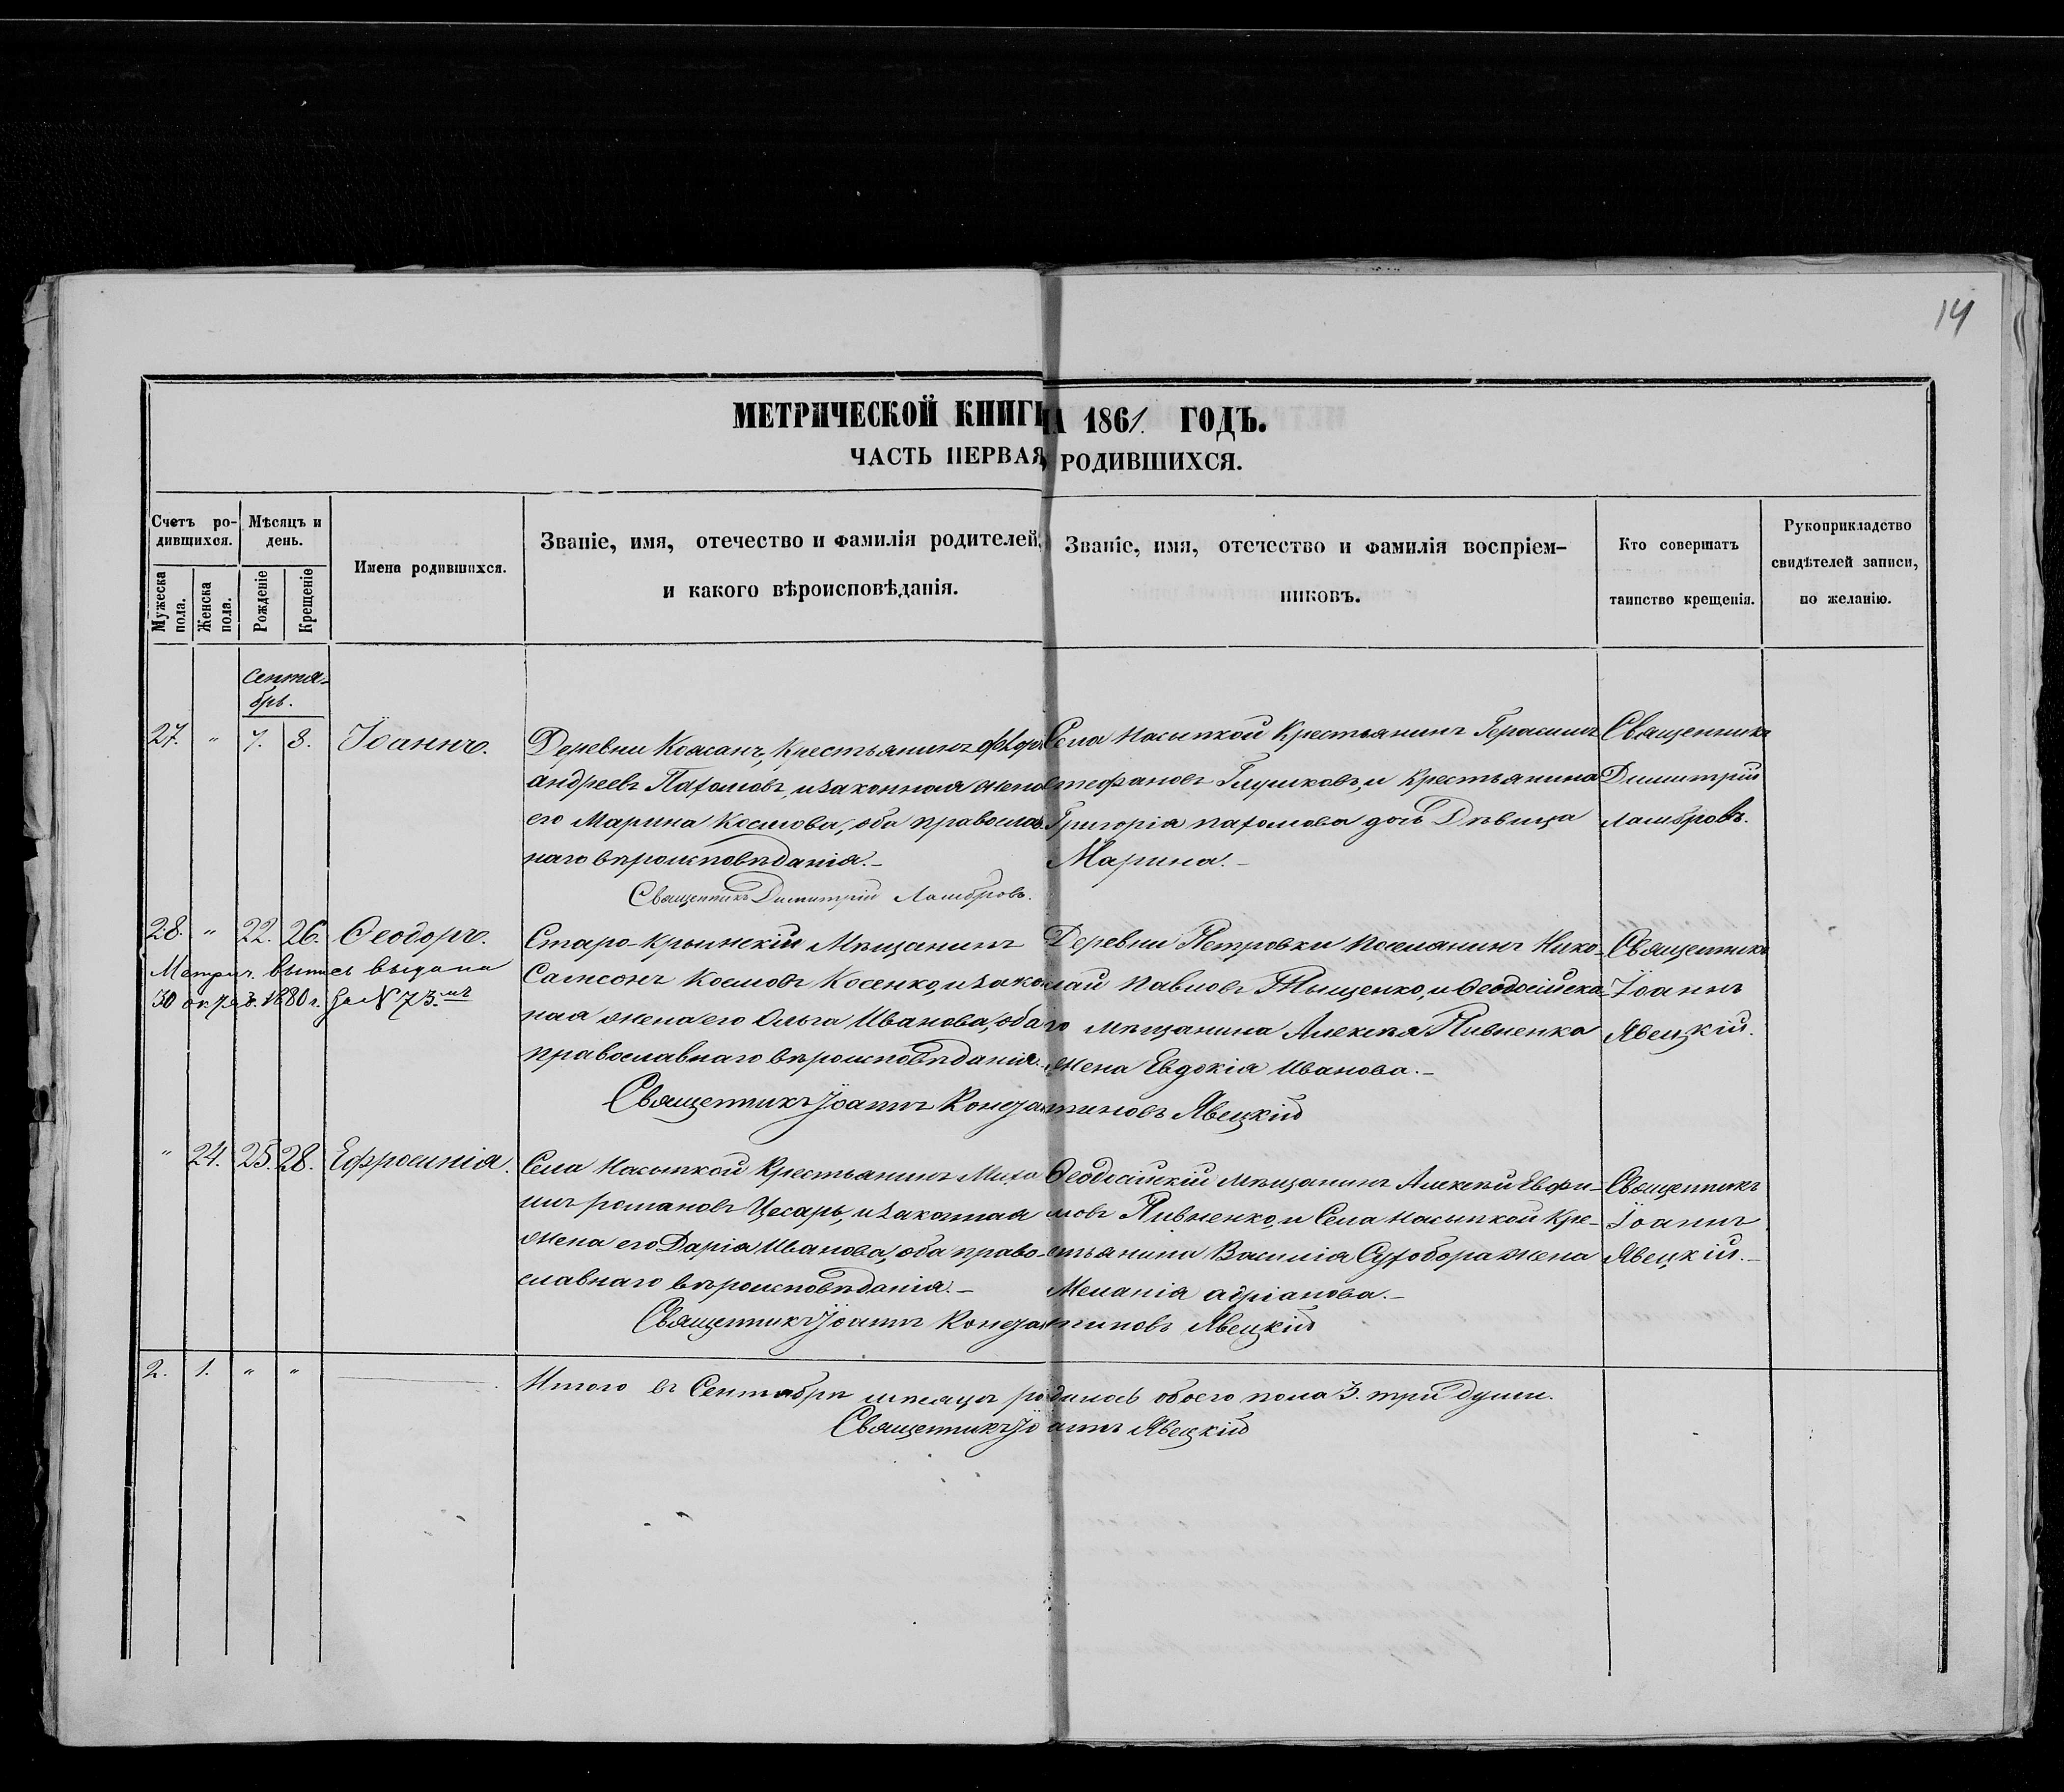 14
МЕТРИЧЕСКОЙ КНИГИ НА 1861. ГОДЪ.
ЧАСТЬ ПЕРВАЯ, РОДИВШИХСЯ.
Счетъ ро-
дившихся.
Мужеска пола.
Женска пола.
Мѣсяцъ и
день.
Рожденіе
Крещеніе
Имена родившихся.
Званіе, имя, отечество и фамилія родителей,
и какого вѣроисповѣданія.
Званіе, имя, отечество и фамилія воспріем-
никовъ.
Кто совершатъ
таинство крещенія.
Рукоприкладство
свидѣтелей записи,
по желанію.
Сентя-
брь.
27. " 7. 8. Іоаннъ.
Деревни Крестьянинъ
андреевъ Пахомовъ, и законная жена
его Марина Космова, оба православ
наго вѣроисповѣданія.-
Священникъ Димитрій Ламбровъ.
Села Насыпкой Крестьянинъ Герасимъ
стефановъ Глушковъ, и Крестьянина
Григорія пахомова дочь Дѣвица
Марина.-
Священникъ
Димитрій
Ламбровъ.
28. " 22. 26. Ѳеодоръ.
Метрич. выпись выдана
30 октяб. 1880 г. за № 73.мъ
Старо-Крымскій Мѣщанинъ
Самсонъ Космовъ Косенко, и закон
ная жена его Ольга Иванова, оба
православнаго вѣроисповѣданія.
Деревни Петровки поселянинъ Нико-
лай павловъ Тыщенко, и Ѳеодосійска-
го мѣщанина Алексѣя Пивненка
жена Евдокія Иванова.-
Священникъ Іоаннъ Константиновъ Явецкій
Священникъ
Іоаннъ
Явецкій.
" 24. 25. 28. Ефросинія.
Села Насыпкой Крестьянинъ Миха
илъ романовъ Цесарь, и законная
жена его Дарія Иванова, оба право-
славнаго вѣроисповѣданія.-
Ѳеодосійскій мѣщанинъ Алексѣй Евфи-
мовъ Пивненко, и Села Насыпкой Кре-
стьянина Василія Сухобора жена
Меланія адріанова.-
Священникъ Іоаннъ Константиновъ Явецкій
Священникъ
Іоаннъ
Явецкій.-
2. 1. " "
Итого въ Сентябрѣ мѣсяцѣ родилось обоего пола 3. три души.
Священникъ Іоаннъ Явецкій